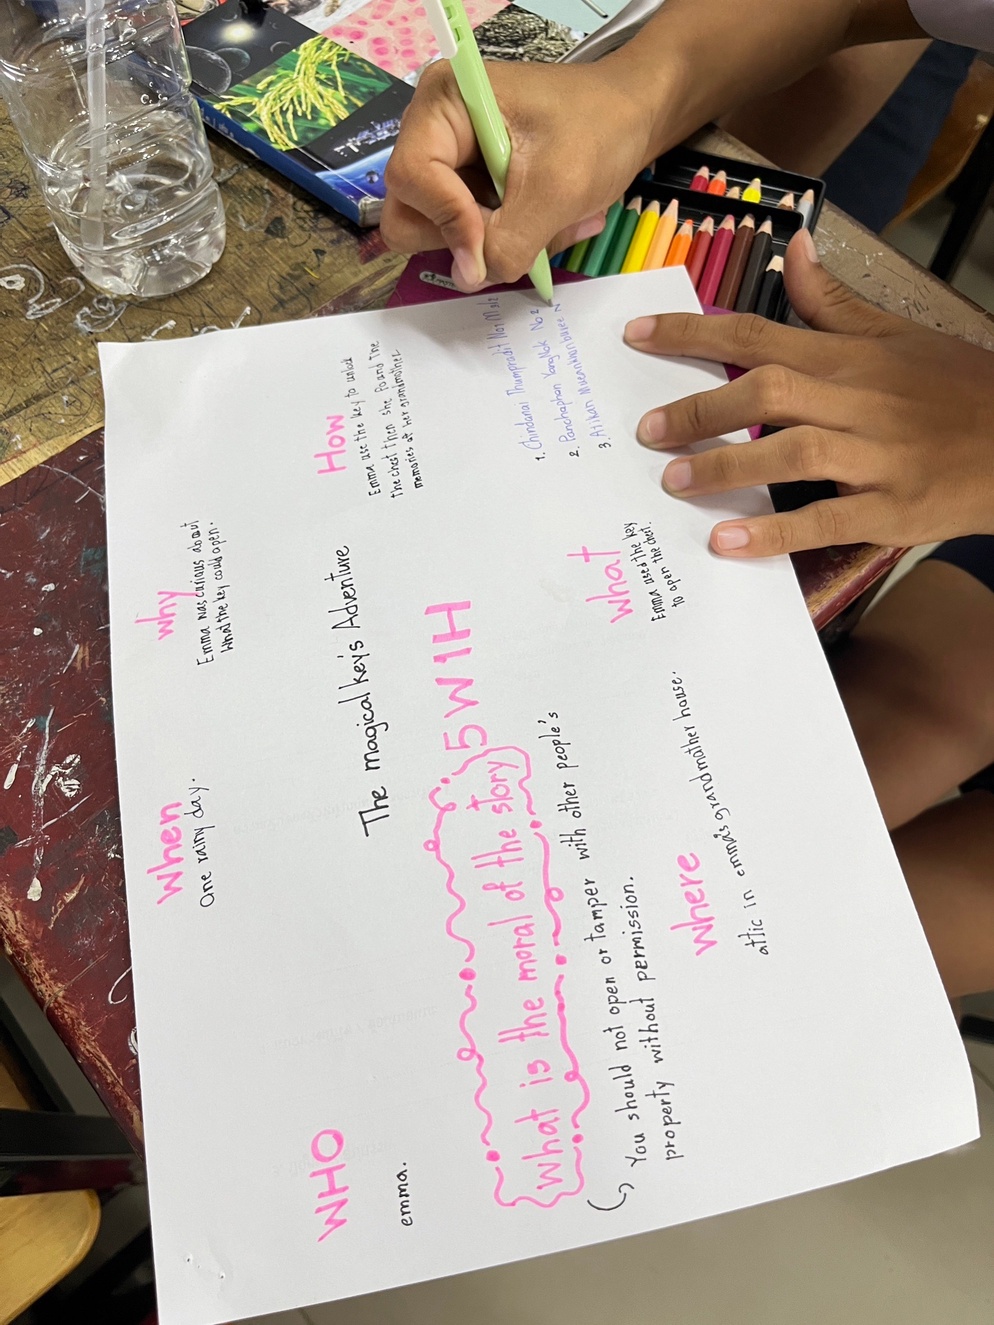 The magical key's Adventure
5W1H
WHO
emma.
When
one rainy day.
Why
Emma was curious about
what the key could open.
How
Emma use the key to unlock
the chest then she found the
memories of her grandmother.
What is the moral of the story
You should not open or tamper with other people's
property without permission.
Where
attic in emma's grandmother house.
What
Emma used the key
to open the chest.
1. Chindanai Thumpradit No1
2. Panchaphon No 2
3. Atikan